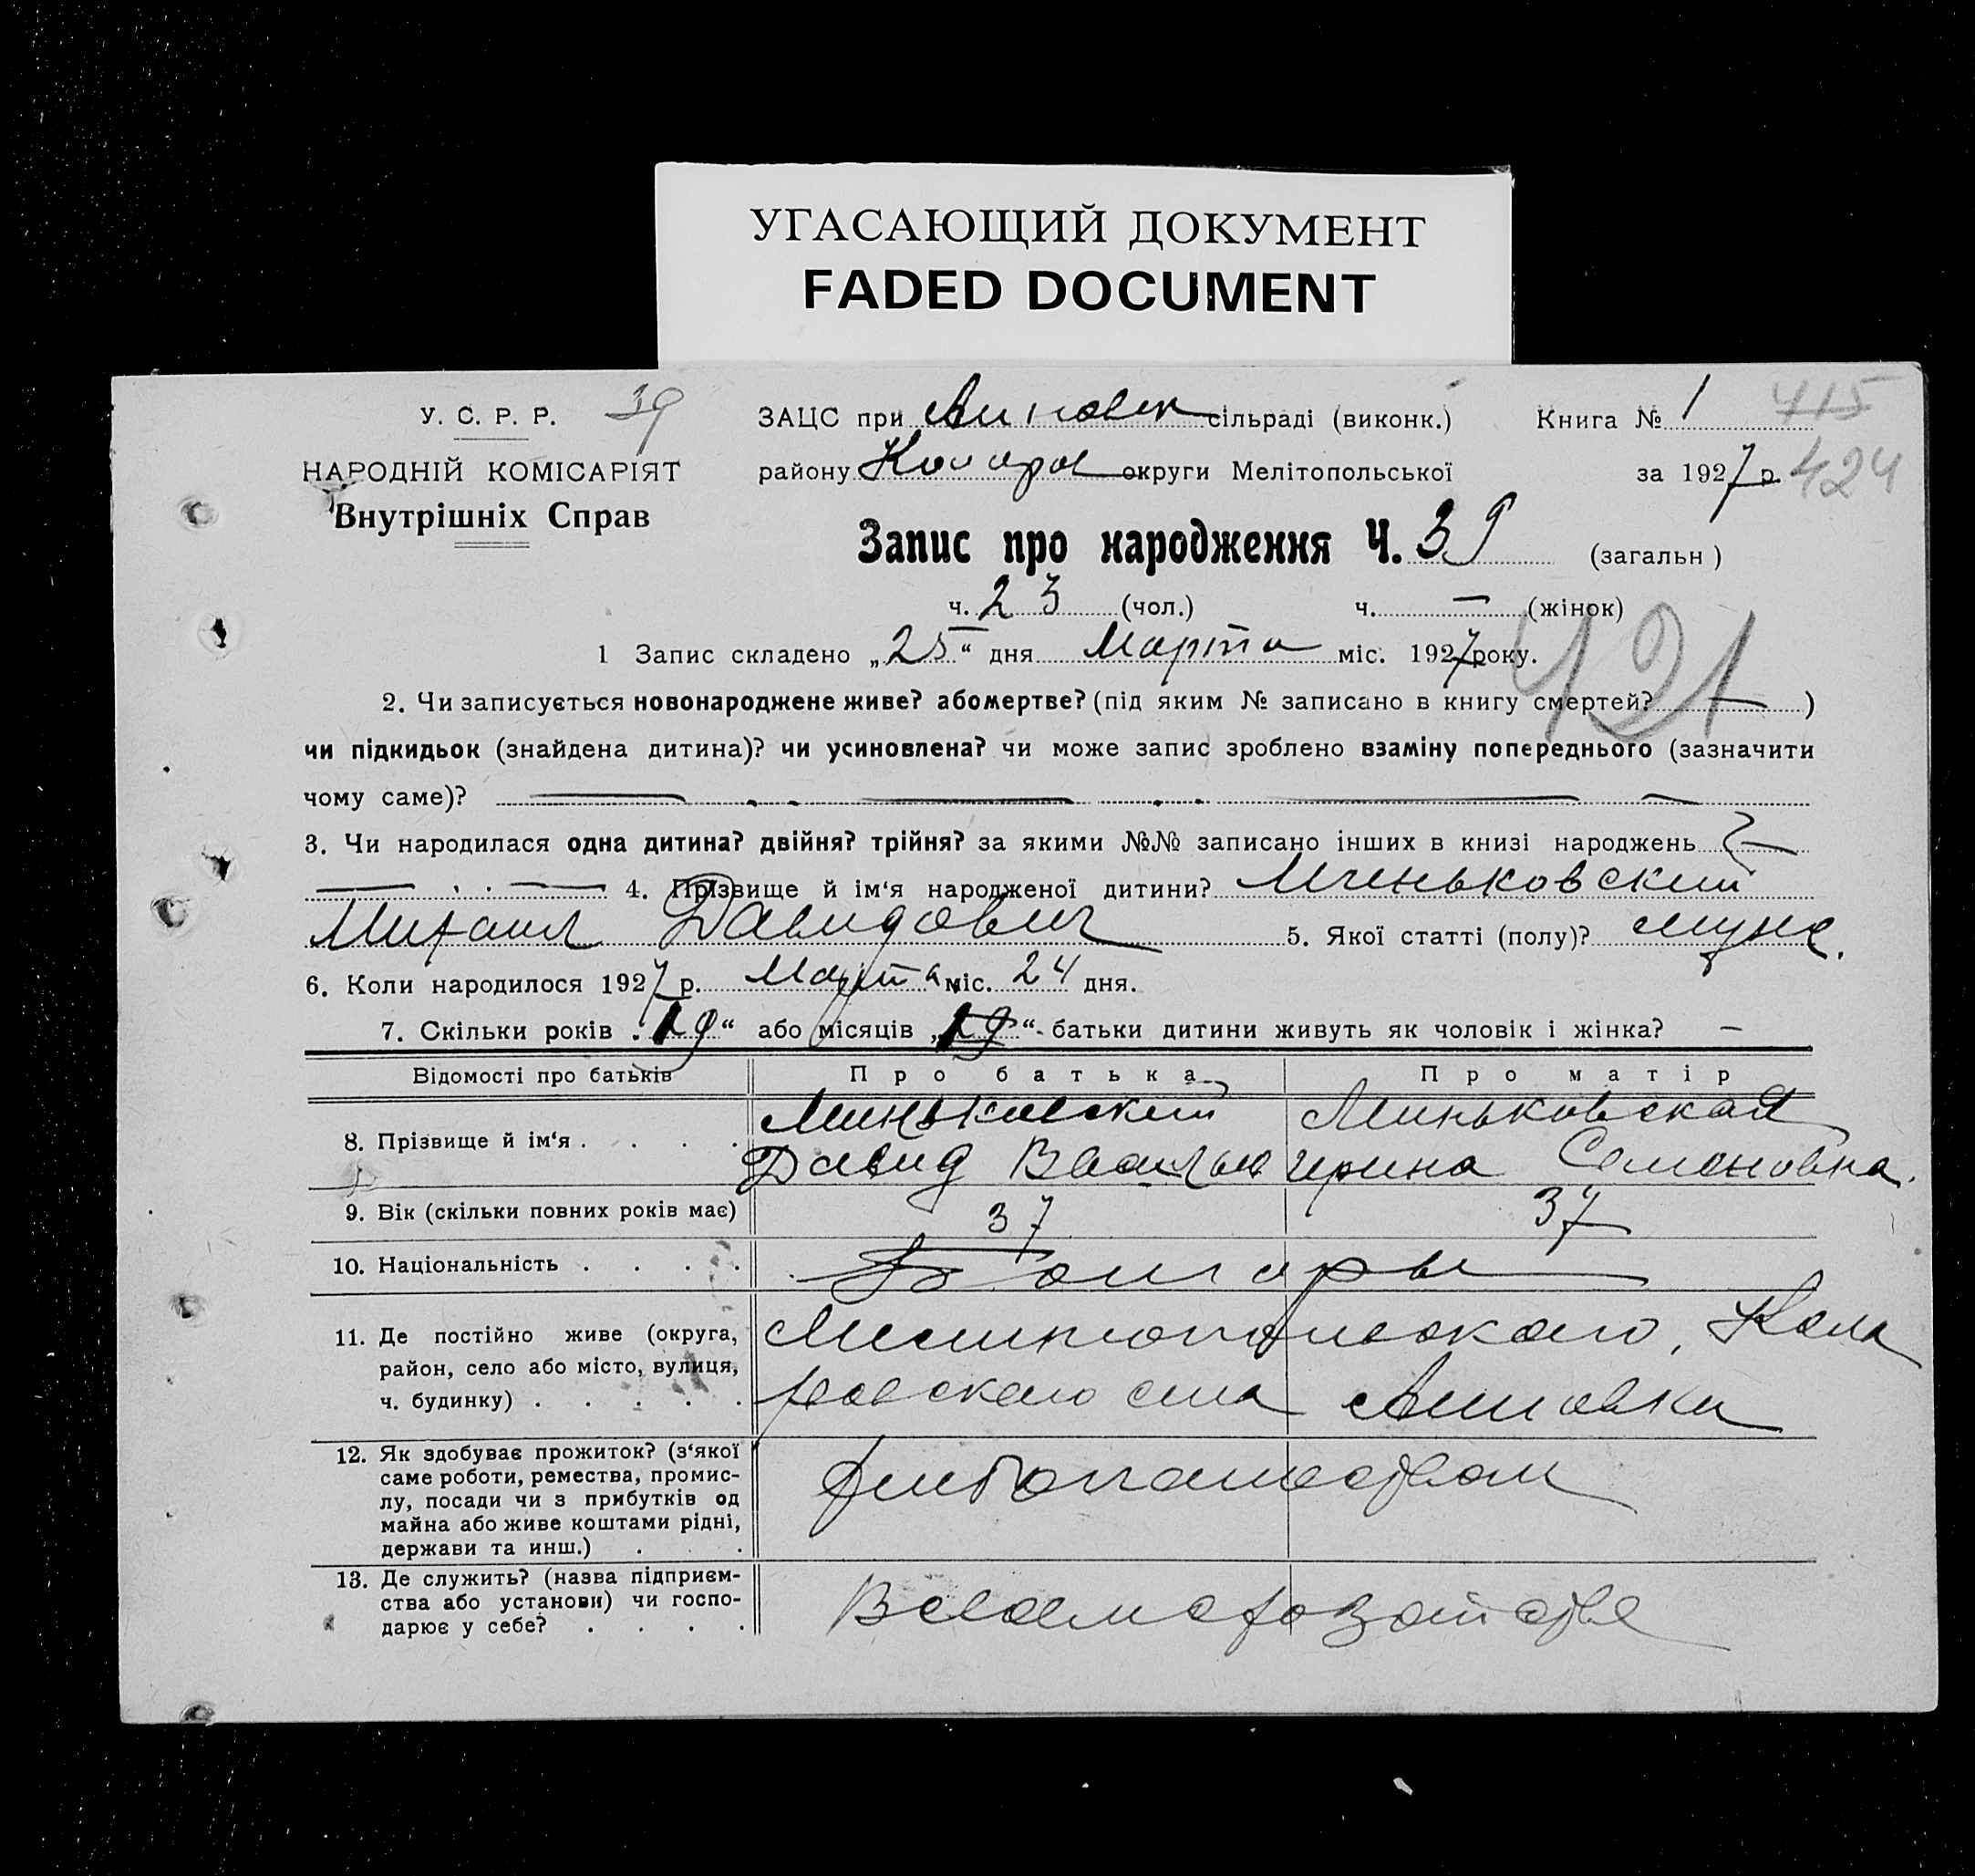 УГАСАЮЩИЙ ДОКУМЕНТ
FADED DOCUMENT
У. С. Р. Р. 39
НАРОДНІЙ КОМІСАРІЯТ
Внутрішніх Справ
ЗАЦС при сільраді (виконк.) Книга № 1 415
району Колар округи Мелітопольської за 1927 р. 424
Запис про народження Ч. 39 (загальн)
ч. 23 (чол.) ч. — (жінок)
421
1 Запис складено „25“ дня Марта міс. 1927 року.
2. Чи записується новонароджене живе? або мертве? (під яким № записано в книгу смертей? — )
чи підкидьок (знайдена дитина)? чи усиновлена? чи може запис зроблено взаміну попереднього (зазначити
чому саме)? —
3. Чи народилася одна дитина? двійня? трійня? за якими №№ записано інших в книзі народжень —
— 4. Прізвище й ім‘я народженої дитини? Миньковский
Михаил Давидович 5. Якої статті (полу)? муж.
6. Коли народилося 1927 р. Марта міс. 24 дня.
7. Скільки років „19“ або місяців „19“ батьки дитини живуть як чоловік і жінка? —
Відомості про батьків Про батька Про матір
8. Прізвище й ім‘я . . . . Миньковский Миньковская
Давид Ирина Семоновна.
9. Вік (скільки повних років має) 37 37
10. Національність . . . . Болгары
11. Де постійно живе (округа, Мелитопольского, Кола
район, село або місто, вулиця,
ч. будинку) . . . . . ровского села
12. Як здобуває прожиток? (з‘якої
саме роботи, ремества, промис- Хлебопашеством
лу, посади чи з прибутків од
майна або живе коштами рідні,
держави та инш.) . . .
13. Де служить? (назва підприєм-
ства або установи) чи госпо-
дарює у себе? . . . .